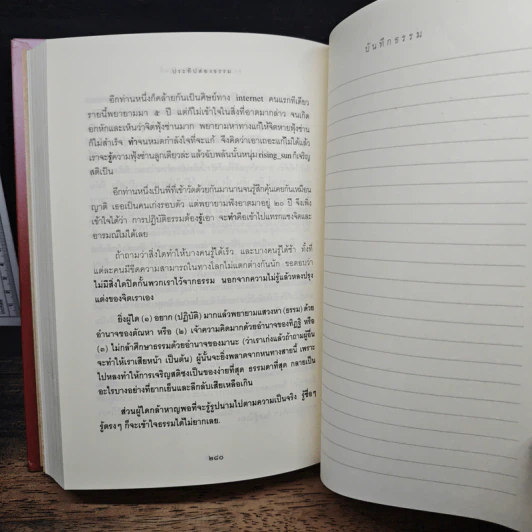 ประทีปส่องธรรม
อีกท่านหนึ่งก็คล้ายกันเป็นศิษย์ทาง internet คนแรกทีเดียว
รายนี้พยายามมา ๕ ปี แต่ก็ไม่เข้าใจในสิ่งที่อาตมากล่าว จนเกิด
อกหักและเห็นว่าจิตฟุ้งซ่านมาก พยายามหาทางแก้ให้จิตหายฟุ้งซ่าน
ก็ไม่สำเร็จ ทำจนหมดกำลังใจที่จะแก้ จึงคิดว่าเอาเถอะแก้ไม่ได้แล้ว
เราจะรู้ความฟุ้งซ่านลูกเดียวล่ะ แล้วฉับพลันนั้นหนุ่ม rising_sun ก็เจริญ
สติเป็น
อีกท่านหนึ่งเป็นพี่ที่เข้าวัดด้วยกันมานานจนรู้สึกคุ้นเคยกันเหมือน
ญาติ เธอเป็นคนเก่งรอบตัว แต่พยายามฟังอาตมาอยู่ ๒๐ ปี จึงเพิ่ง
เข้าใจได้ว่า การปฏิบัติธรรมต้องรู้เอา จะทำคือเข้าไปแทรกแซงจิตและ
อารมณ์ไม่ได้เลย
ถ้าถามว่าสิ่งใดทำให้บางคนรู้ได้เร็ว และบางคนรู้ได้ช้า ทั้งที่
แต่ละคนมีขีดความสามารถในทางโลกไม่แตกต่างกันนัก ขอตอบว่า
ไม่มีสิ่งใดปิดกั้นพวกเราไว้จากธรรม นอกจากความไม่รู้แล้วหลงปรุง
แต่งของจิตเราเอง
ยิ่งผู้ใด (๑) อยาก (ปฏิบัติ) มากแล้วพยายามแสวงหา (ธรรม) ด้วย
อำนาจของตัณหา หรือ (๒) เจ้าความคิดมากด้วยอำนาจของทิฏฐิ หรือ
(๓) ไม่กล้าศึกษาธรรมด้วยอำนาจของมานะ (ว่าเราเก่งแล้วถ้าถามผู้อื่น
จะทำให้เราเสียหน้า เป็นต้น) ผู้นั้นจะยิ่งพลาดจากหนทางสายนี้ เพราะ
ไปหลงทำให้การเจริญสติซึ่งเป็นของง่ายที่สุด ธรรมดาที่สุด กลายเป็น
อะไรบางอย่างที่ยากเย็นและลึกลับเสียเหลือเกิน
ส่วนผู้ใดกล้าหาญพอที่จะรู้รูปนามไปตามความเป็นจริง รู้ซื่อๆ
รู้ตรงๆ ก็จะเข้าใจธรรมได้ไม่ยากเลย.
๒๘๐
บันทึกธรรม